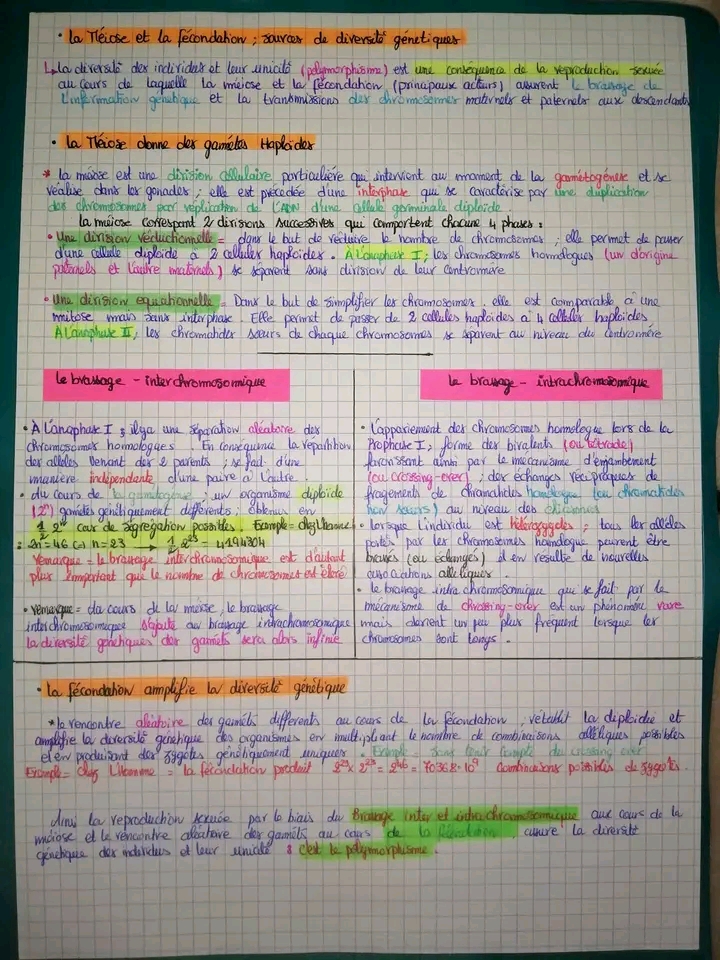 • La Méiose et la fécondation ; sources de diversité génétiques
La diversité des individus et leur unicité (polymorphisme) est une conséquence de la reproduction sexuée
au cours de laquelle la méiose et la fécondation (principaux acteurs) assurent le brassage de
l'information génétique et la transmissions des chromosomes maternels et paternels aux descendants
• La Méiose donne des gamètes Haploïdes
* la méiose est une division cellulaire particulière qui intervient au moment de la gamétogénèse et se
réalise dans les gonades ; elle est précédée d'une interphase qui se caractérise par une duplication
des chromosomes par réplication de l'ADN d'une cellule germinale diploïde
la méiose correspent 2 divisions successives qui comportent chacune 4 phases :
• Une division réductionnelle = dans le but de réduire le nombre de chromosomes ; elle permet de passer
d'une cellule diploïde à 2 cellules haploïdes. À L'anaphase I ; les chromosomes homologues (un d'origine
paternels et l'autre maternels) se séparent sans division de leur centromère
• Une division equationnelle = Dans le but de simplifier les chromosomes. elle est comparable à une
mitose mais sans interphase. Elle permet de passer de 2 cellules haploïdes à 4 cellules haploïdes
À L'anaphase II, les chromatides sœurs de chaque chromosomes se séparent au niveau du centromère
Le brassage - interchromosomique
• À L'anaphase I ; il y a une séparation aléatoire des
chromosomes homologues. En conséquence la répartition
des allèles venant des 2 parents ; se fait d'une
manière indépendante d'une paire à l'autre.
• du cours de la gamétogénèse ; un organisme diploïde
(2^n) gamètes génétiquement differents ; obtenus en
1/2 2^n cas de ségregation possibles. Exemple = chez L'homme
: 2n = 46 (=) n = 23 → 1/2 2^23 = 4194304
remarque = le brassage interchromosomique est d'autant
plus important que le nombre de chromosomes est élevé
• remarque = du cours de la méiose, le brassage
interchromosomique s'ajoute au brassage intrachromosomique
la diversité génétiques des gamets sera alors infinie
Le brassage - intrachromosomique
• L'appariement des chromosomes homologue lors de la
Prophase I ; forme des bivalents (ou tétrade)
favorissant ainsi par le mécanisme d'enjambement
(ou crossing-over) ; des échanges réciproques de
fragements de chromatides homologue (ou chromatides
non sœurs) au niveau des chiasmas
• lorsque l'individu est hétérozygotes ; tous les allèles
portés par les chromosomes homologue peuvent être
brassés (ou échangés) il en résulte de nouvelles
associations alleliques.
• le brassage intra chromosomique qui se fait par le
mécanisme de chrossing-over est un phénomène rare
mais devient un peu plus fréquent lorsque les
chromosomes sont longs.
• La fécondation amplifie la diversité génétique
* la rencontre aléatoire des gamets differents au cours de la fécondation, rétablit la diploïdie et
amplifie la diversité génétique des organismes en multipliant le nombre de combinaisons alléliques possibles
et en produisant des zygotes génétiquement uniques. Exemple = sans tenir compte du crossing over
Exemple = chez L'homme = la fécondation produit 2^23 x 2^23 = 2^46 = 70368.10^9 combinaisons possibles de zygotes.
Ainsi la reproduction sexuée par le biais du Brassage inter et intrachromosomique aux cours de la
méiose et la rencontre aléatoire des gamets au cours de la fécondation assure la diversité
génétique des individus et leur unicité : c'est le polymorphisme.